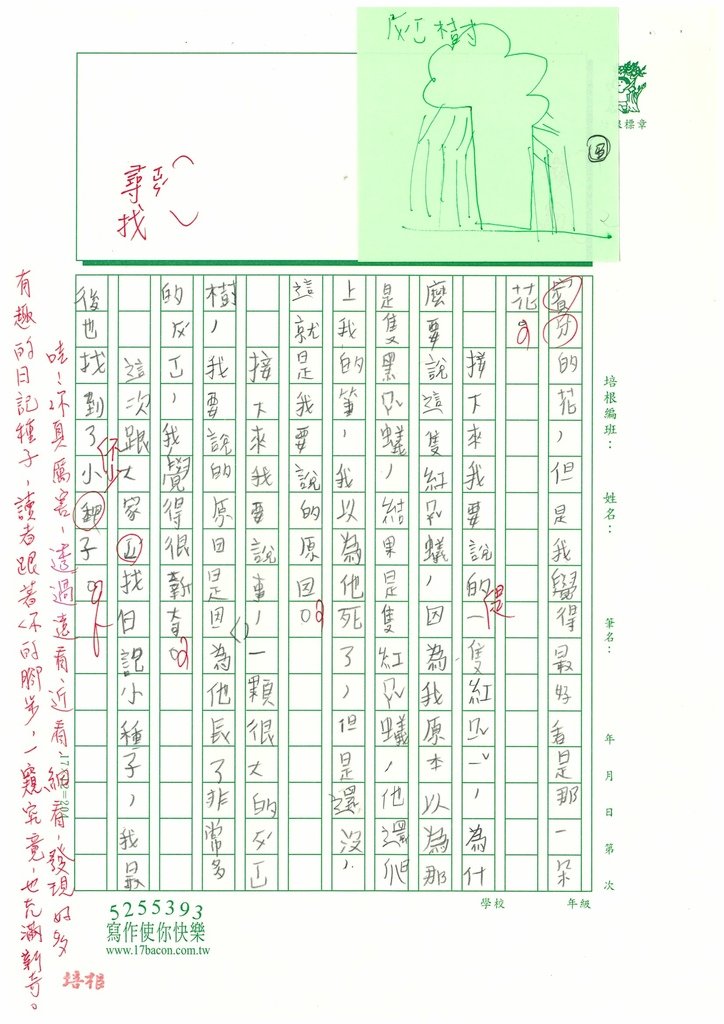 樹
標章
尋找
培根編班：　姓名：　筆名：　年　月　日第　次
賓分的花，但是我覺得最好看是那一朵
花。
接下來我要說的一隻紅，為什
麼要說這隻紅蟻，因為我原本以為那
是隻黑蟻，結果是隻紅蟻，他還爬
上我的筆，我以為他死了，但是還沒，
這就是我要說的原因。
接下來我要說事，一顆很大的
樹，我要說的原因是因為他長了非常多
的，我覺得很新奇。
這次跟大家找日記小種子，我最
後也找到了小種子。
哇！你真厲害，透過遠看、近看、細看，發現好多
有趣的日記種子，讀者跟著你的腳步，一窺究竟，也充滿新奇。
學校　年級
5255393
寫作使你快樂
www.17bacon.com.tw
培根